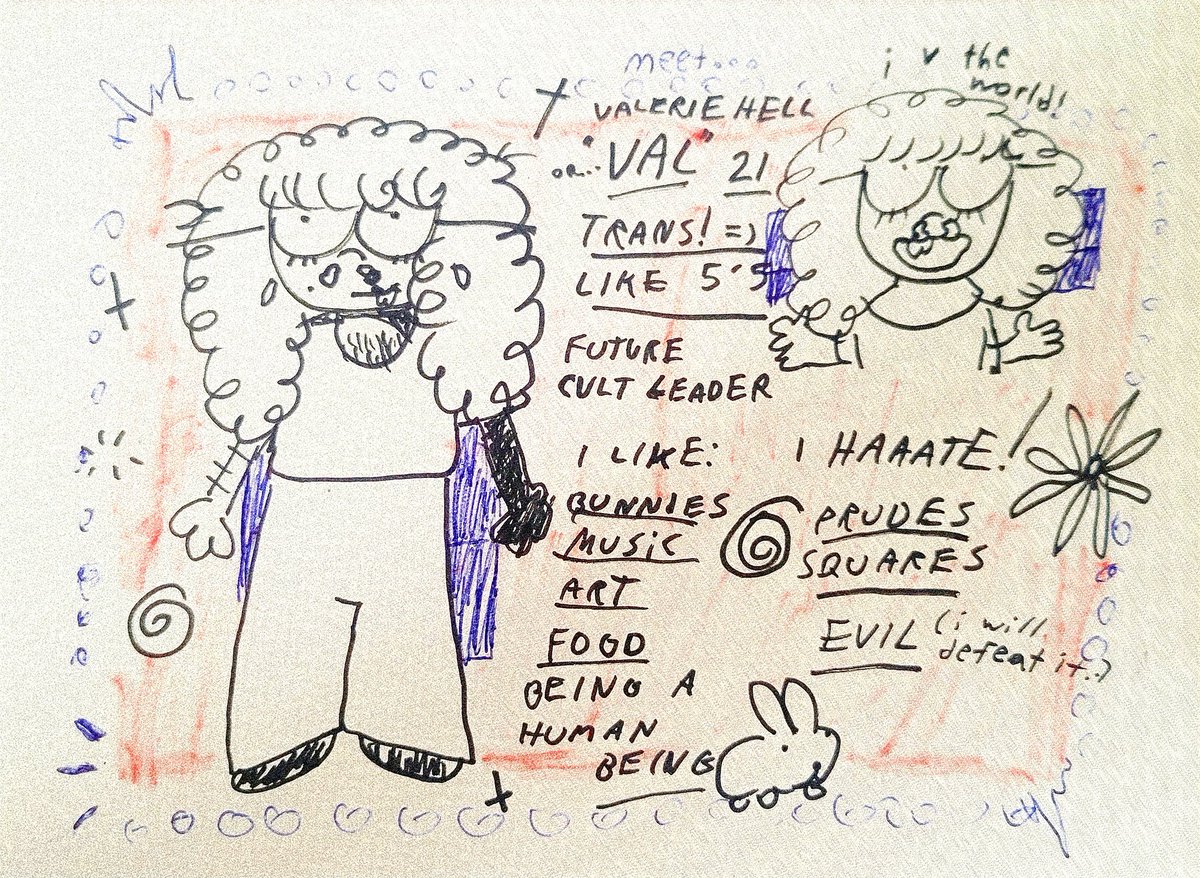 meet...
VALERIE HELL
or... "VAL" 21
TRANS! =)
LIKE 5'5
FUTURE
CULT LEADER
i v the
world!
I LIKE:
BUNNIES
MUSIC
ART
FOOD
BEING A
HUMAN
BEING
I HAAATE!
PRUDES
SQUARES
EVIL (i will
defeat it..)